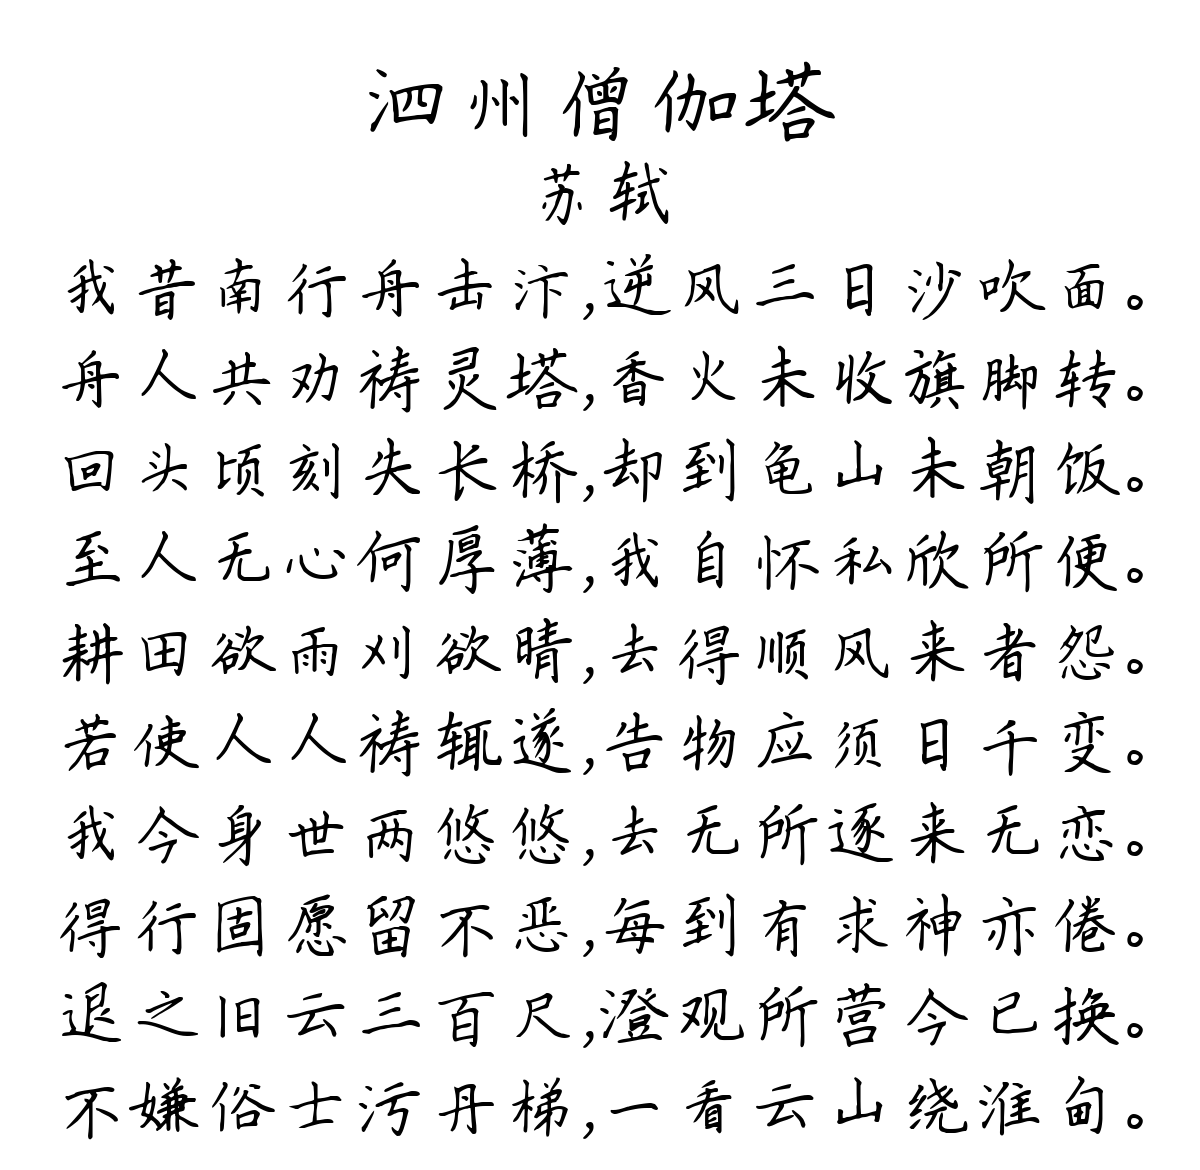 泗州僧伽塔
苏轼
我昔南行舟击汴,逆风三日沙吹面。
舟人共劝祷灵塔,香火未收旗脚转。
回头顷刻失长桥,却到龟山未朝饭。
至人无心何厚薄,我自怀私欣所便。
耕田欲雨刈欲晴,去得顺风来者怨。
若使人人祷辄遂,告物应须日千变。
我今身世两悠悠,去无所逐来无恋。
得行固愿留不恶,每到有求神亦倦。
退之旧云三百尺,澄观所营今已换。
不嫌俗士污丹梯,一看云山绕淮甸。